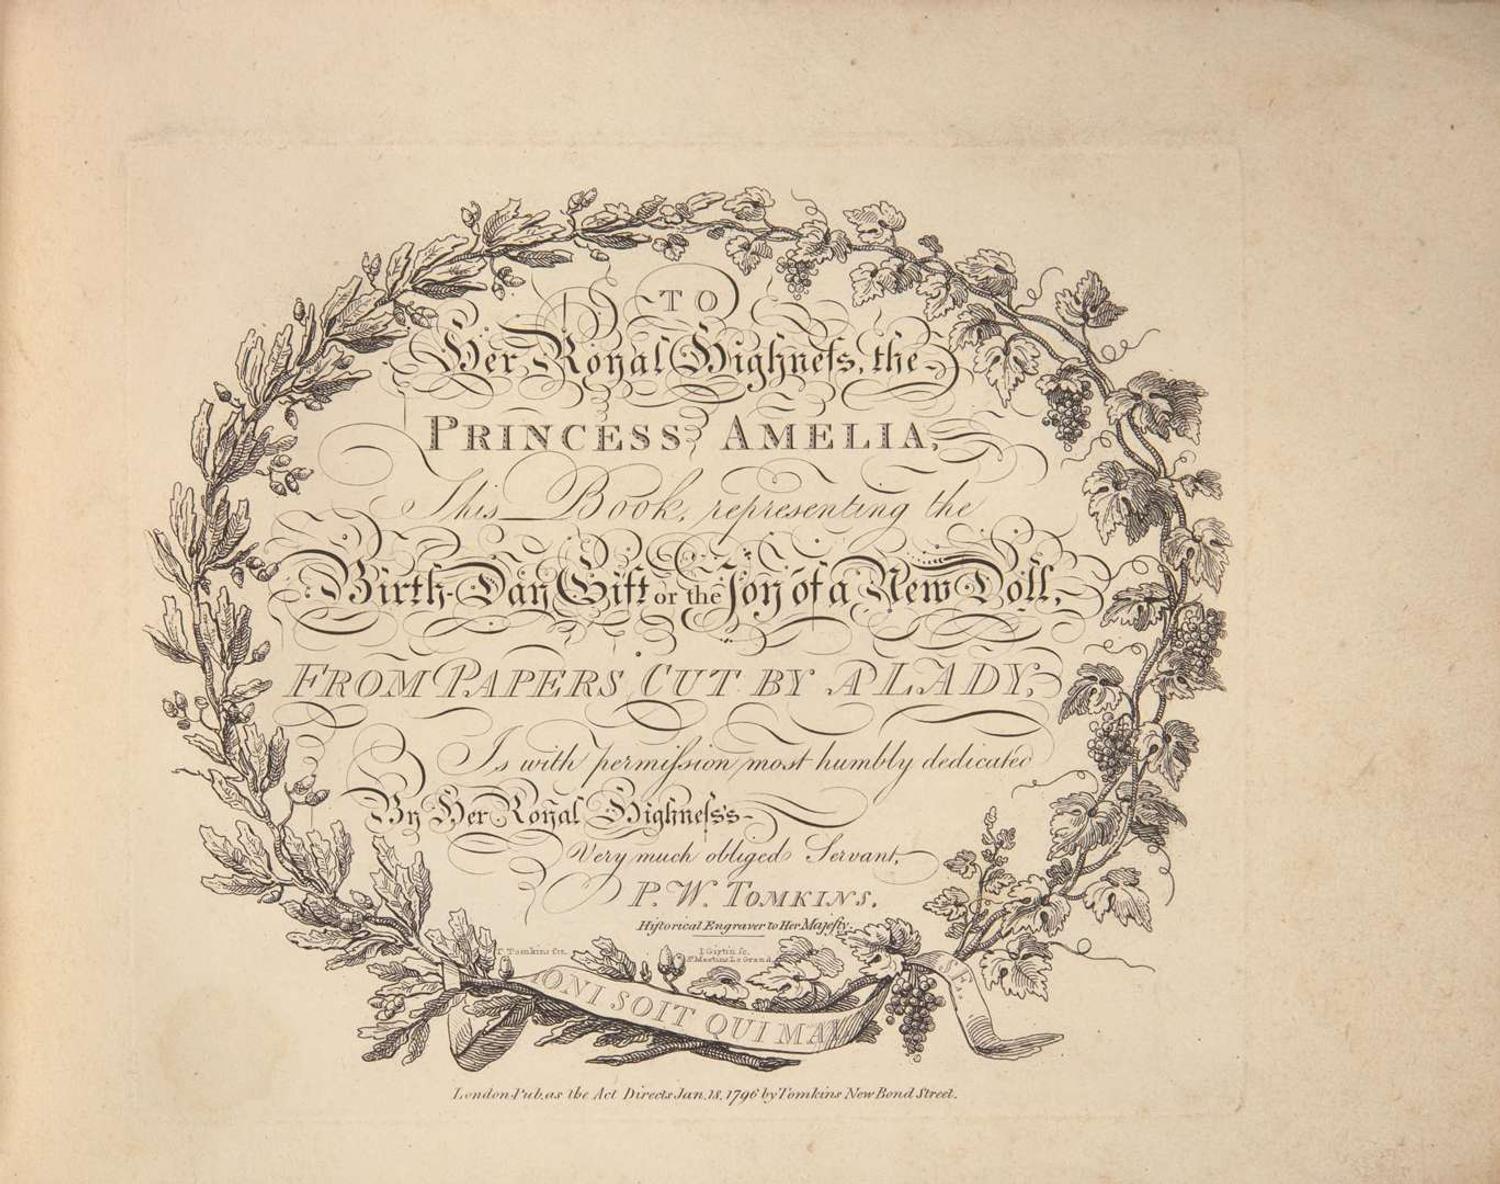 TO
Her Royal Highneſs, the
PRINCESS AMELIA,
This Book, representing the
Birth-Day Gift or the Joy of a New Doll,
FROM PAPERS CUT BY A LADY,
Is with permiſsion most humbly dedicated
By Her Royal Highneſs's
Very much obliged Servant,
P. W. TOMKINS.
Hiſtorical Engraver to Her Majeſty.
Tomkins
I Girtin Sc.
St Martins Le Grand
ONI SOIT QUI MA SE
London Pub. as the Act Directs Jan. 18, 1796 by Tomkins New Bond Street.